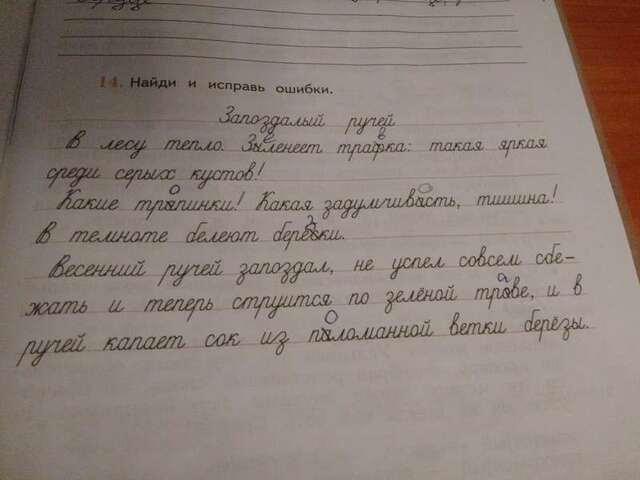 14. Найди и исправь ошибки.
Запоздалый ручей
В лесу тепло. Зыленеет трафка: такая яркая
среди серых кустов!
Какие трапинки! Какая задумчивасть, тишина!
В темноте белеют берёски.
Весенний ручей запоздал, не успел совсем сбе-
жать и теперь струится по зелёной трове, и в
ручей капает сок из паломанной ветки берёзы.